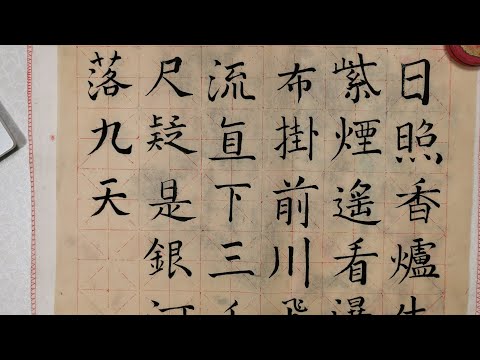 日照香爐生
紫煙遙看瀑
布掛前川飛
流直下三千
尺疑是銀河
落九天